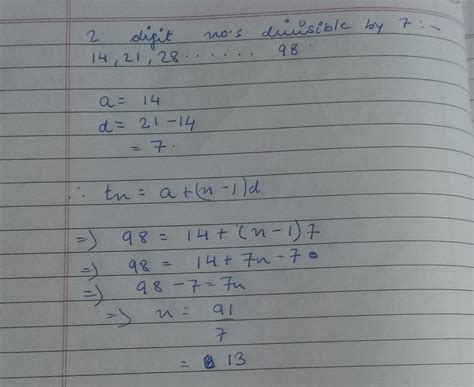 2 digit no.s divisible by 7 :-
14, 21, 28 ...... 98.
a = 14
d = 21 - 14
= 7.
∴ tn = a + (n - 1)d
=) 98 = 14 + (n - 1) 7
=) 98 = 14 + 7n - 7
=) 98 - 7 = 7n
=) n = 91
7
= 13